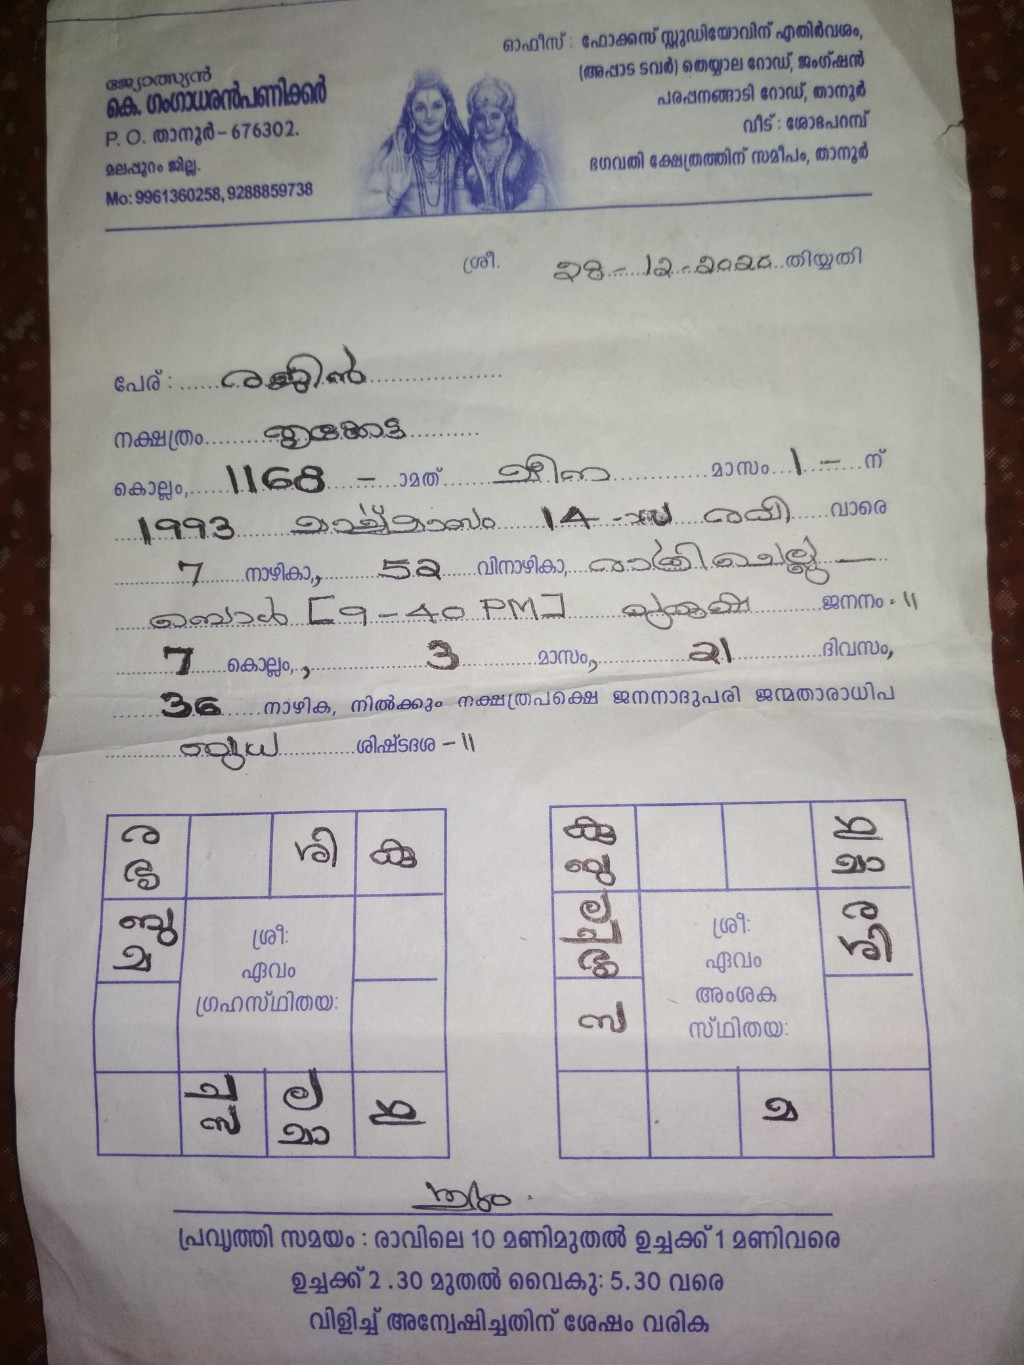 ജ്യോത്സ്യൻ
കെ. ഗംഗാധരൻപണിക്കർ
P. O. താനൂർ – 676302.
മലപ്പുറം ജില്ല.
Mo: 9961360258, 9288859738
ഓഫീസ് : ഫോക്കസ് സ്റ്റുഡിയോവിന് എതിർവശം,
(അപ്പാട ടവർ) തെയ്യാല റോഡ്, ജംഗ്ഷൻ
പരപ്പനങ്ങാടി റോഡ്, താനൂർ
വീട് : ശോഭപറമ്പ്
ഭഗവതി ക്ഷേത്രത്തിന് സമീപം, താനൂർ
ശ്രീ. 28-12-2020 തിയ്യതി
പേര് : രജിൻ
നക്ഷത്രം തൃക്കേട്ട
കൊല്ലം, 1168 – ാമത് മീന മാസം 1 – ന്
1993 മാർച്ച്മാസം 14 രവി വാരെ
7 നാഴികാ, 52 വിനാഴികാ, രാത്രിചെല്ലു
മ്പോൾ [9-40 PM] പുരുഷ ജനനം ॥
7 കൊല്ലം, 3 മാസം, 21 ദിവസം,
36 നാഴിക, നിൽക്കും നക്ഷത്രപക്ഷെ ജനനാദുപരി ജന്മതാരാധിപ
ബുധ ശിഷ്ടദശ – ॥
ര ശി കു
ശു
ബു
മ
ശ്രീ:
ഏവം
ഗ്രഹസ്ഥിതയ:
ച ല ഗു
സ മാ
കു ഗു
ബു മാ
ല ര
ച ശി
ശു
സ
ശ്രീ:
ഏവം
അംശക
സ്ഥിതയ:
മ
ശുഭം.
പ്രവൃത്തി സമയം : രാവിലെ 10 മണിമുതൽ ഉച്ചക്ക് 1 മണിവരെ
ഉച്ചക്ക് 2 .30 മുതൽ വൈകു: 5.30 വരെ
വിളിച്ച് അന്വേഷിച്ചതിന് ശേഷം വരിക